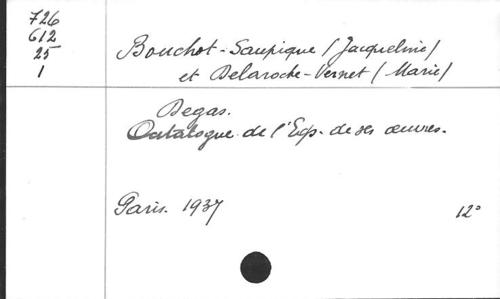 726
612
25
1
Bouchot-Saupique (Jacqueline)
et Delaroche-Vernet (Marie)
Degas.
Catalogue de l'Exp. de ses œuvres.
Paris. 1937
12°